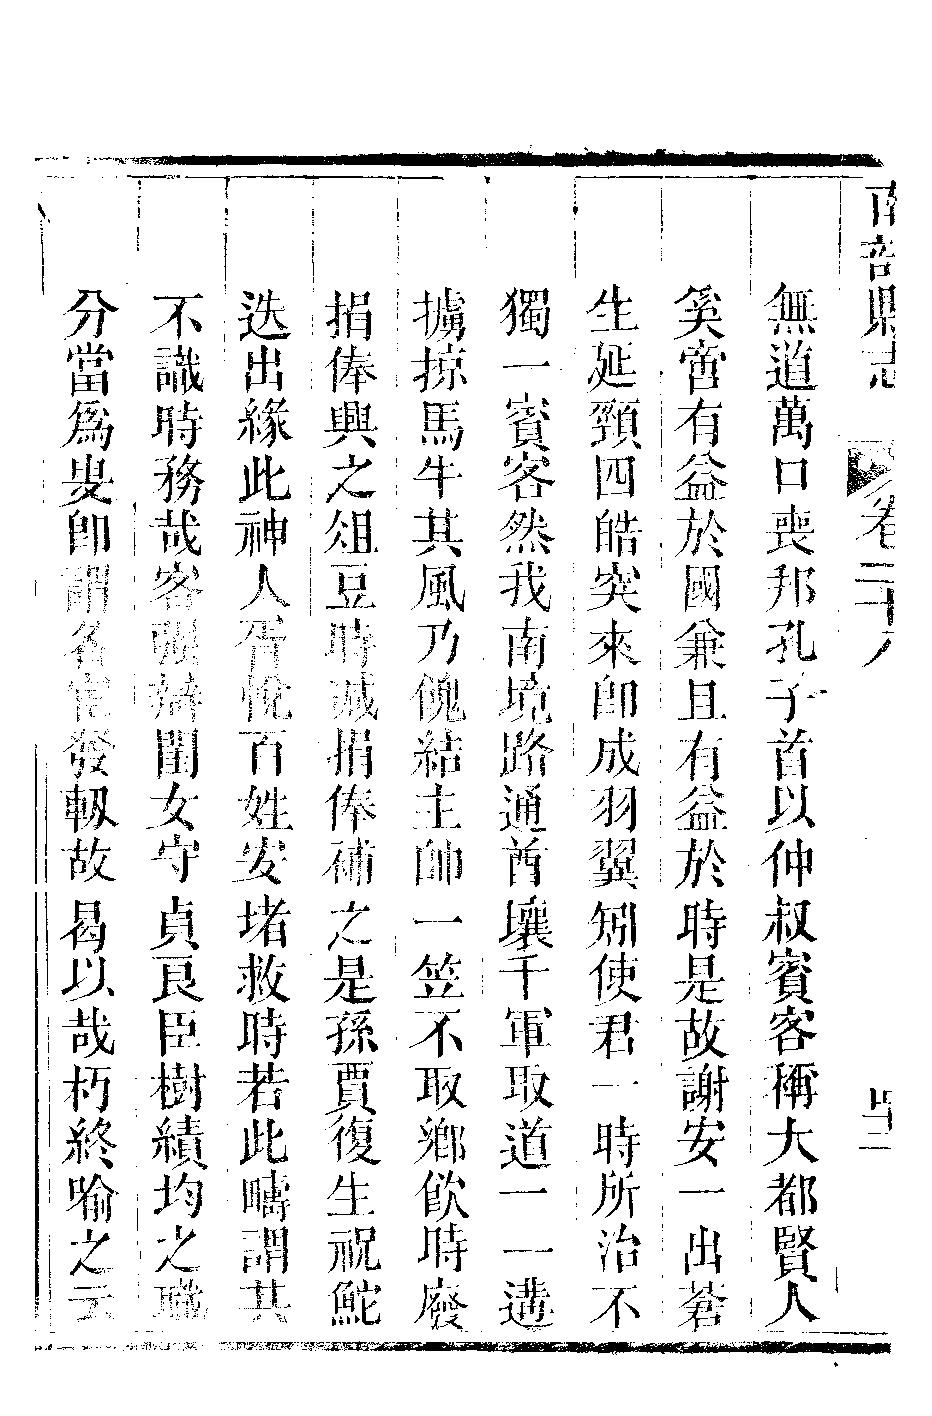 南部縣志 卷二十八 四十二
無道萬口喪邦孔子首以仲叔賓客稱大都賢人
奚啻有益於國兼且有益於時是故謝安一出蒼
生延頸四皓突來卽成羽翼矧使君一時所治不
獨一賓客然我南境路通酋壤千軍取道一一遘
擄掠馬牛其風乃傀結主帥一笠不取鄉飮時廢
捐俸興之俎豆時減捐俸補之是孫賈復生祝鮀
迭出緣此神人胥悅百姓安堵救時若此疇謂其
不識時務哉客頭辯閨女守貞良臣樹績均之職
分當爲叟卽謂名宦發軔故曷以哉朽終喻之云